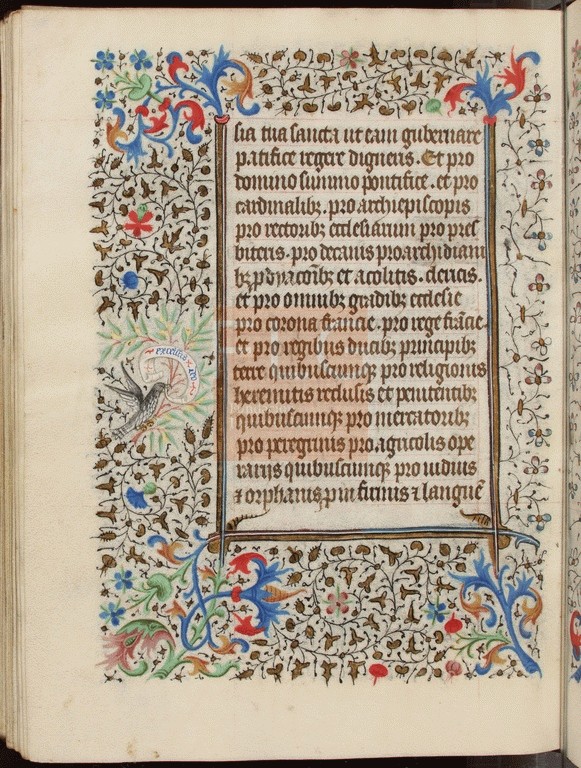 excelsis deo
sia tua sancta ut eam gubernare
pacifice regere digneris. Et pro
domino summo pontifice. et pro
cardinalibꝫ. pro archiepiscopis
pro rectoribꝫ ecclesiarum pro pres
biteris. pro decanis pro archidiani
bꝫ p dyacoībꝫ et acolitis. clericis.
et pro omnibꝫ gradibꝫ ecclesie
pro corona francie. pro rege frācie.
et pro regibus ducibꝫ principibꝫ
terre quibuscunqꝫ pro religionis
heremitis reclusis et penitentibꝫ
quibuscunqꝫ pro mercatoribꝫ
pro peregrinis pro agricolis ope
rarijs quibuscunqꝫ pro viduis
⁊ orphanis p infirmis ⁊ languē